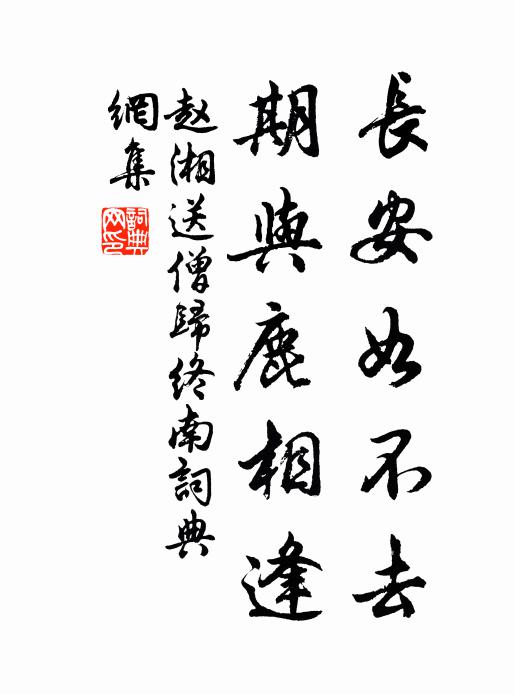 長安如不去
期與鹿相逢
赵湘送僧歸終南詞典
網集
詞典網印